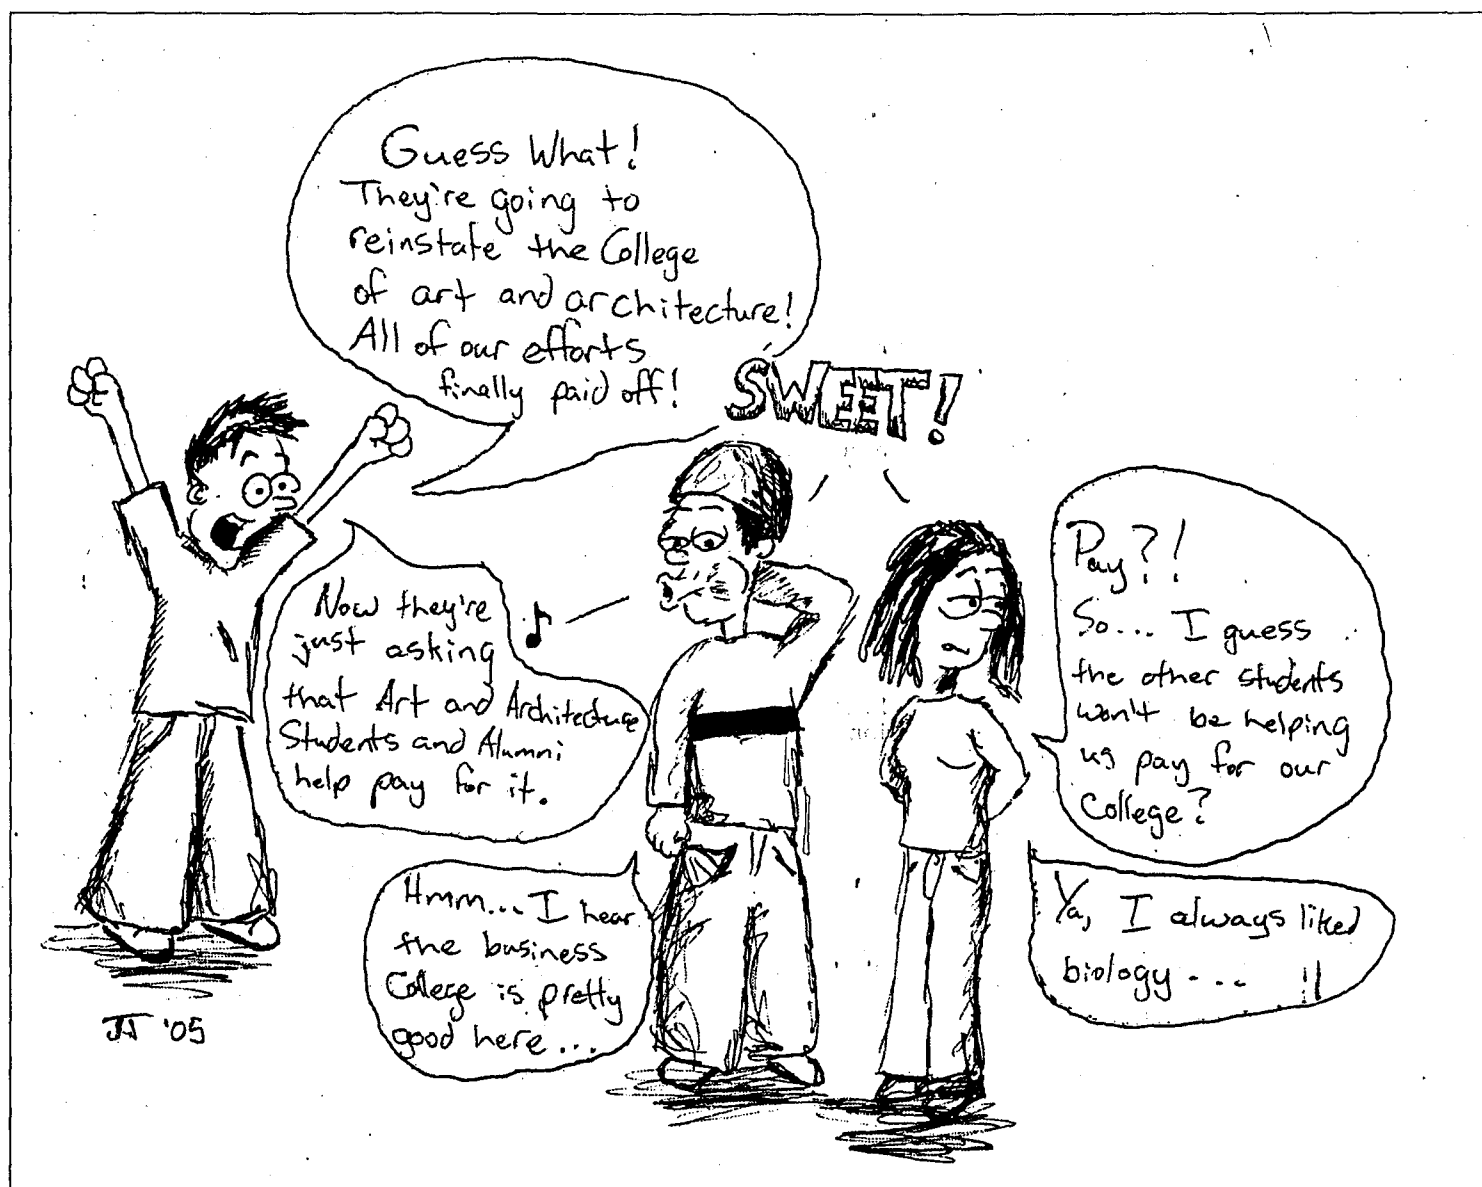 Guess What!
They're going to
reinstate the College
of art and architecture!
All of our efforts
finally paid off!
SWEET!
Now they're
just asking
that Art and Architecture
Students and Alumni
help pay for it.
Pay?!
So... I guess
the other students
won't be helping
us pay for our
College?
Hmm... I hear
the business
College is pretty
good here...
Ya, I always liked
biology...
JJ '05